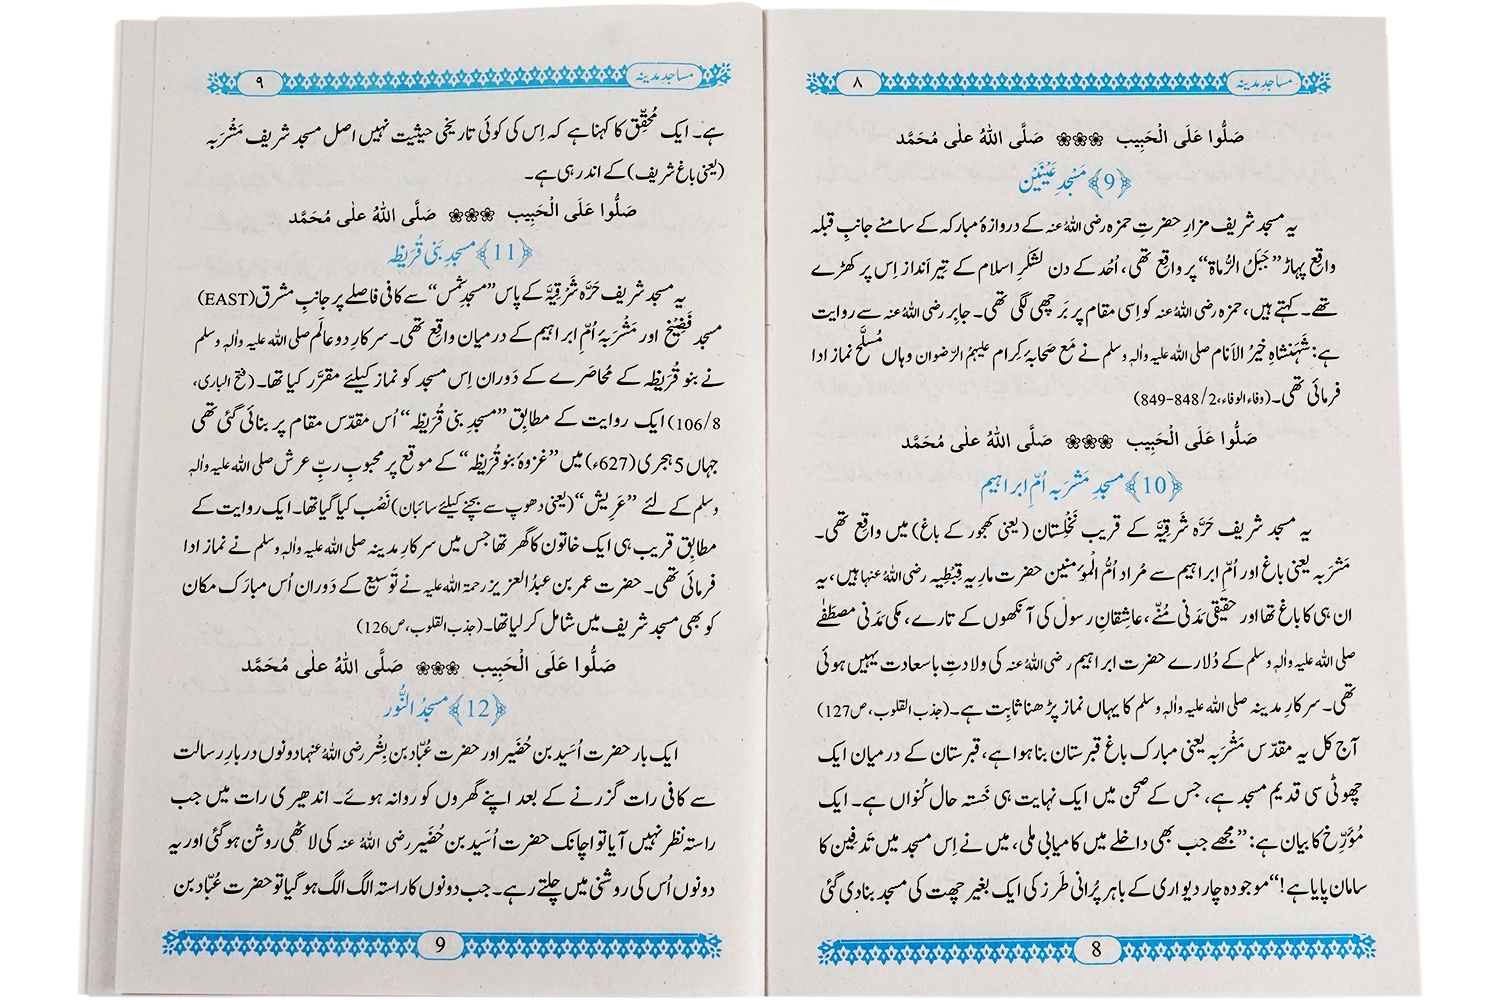 مساجدِ مدینہ
۸
صَلُّوا عَلَی الْحَبِیب ❀❀❀ صَلَّی اللہُ علٰی مُحَمَّد
﴿9﴾ مَسْجِدِ عَیْنَیْن
یہ مسجد شریف مزارِ حضرتِ حمزہ رضی اللہُ عنہ کے دروازۂ مبارکہ کے سامنے جانبِ قبلہ
واقِع پہاڑ ”جَبَلُ الرُّماۃ“ پر واقِع تھی، اُحُد کے دن لشکرِ اسلام کے تیر اَنداز اِس پر کھڑے
تھے۔ کہتے ہیں، حمزہ رضی اللہُ عنہ کو اِسی مقام پر بَرچھی لگی تھی۔ جابِر رضی اللہُ عنہ سے روایت
ہے: شَہَنشاہِ خَیرُ الاَنام صلی اللہ علیہ واٰلہٖ وسلم نے مَع صَحابۂ کِرام علیہمُ الرِّضوان وہاں مُسلَّح نماز ادا
فرمائی تھی۔ (وفاء الوفاء، 2/848-849)
صَلُّوا عَلَی الْحَبِیب ❀❀❀ صَلَّی اللہُ علٰی مُحَمَّد
﴿10﴾ مسجدِ مَشْرَبہ اُمِّ ابراہیم
یہ مسجد شریف حَرَّہ شَرقِیَّہ کے قریب نَخْلِستان (یعنی کھجور کے باغ) میں واقِع تھی۔
مَشرَبہ یعنی باغ اور اُمِّ ابراہیم سے مُراد اُمُّ الْمؤمنین حضرت ماریہ قِبْطیہ رضی اللہُ عنہا ہیں، یہ
ان ہی کا باغ تھا اور حقیقی مَدَنی مُنّے، عاشِقانِ رسول کی آنکھوں کے تارے، مکی مَدَنی مصطَفٰے
صلی اللہ علیہ واٰلہٖ وسلم کے دُلارے حضرت ابراہیم رضی اللہُ عنہ کی وِلادتِ باسعادت یہیں ہوئی
تھی۔ سرکارِ مدینہ صلی اللہ علیہ واٰلہٖ وسلم کا یہاں نَماز پڑھنا ثابِت ہے۔ (جذب القلوب، ص127)
آج کل یہ مقدّس مَشْرَبہ یعنی مبارک باغ قبرستان بنا ہوا ہے، قبرستان کے درمیان ایک
چھوٹی سی قدیم مسجد ہے، جس کے صحن میں ایک نہایت ہی خَستہ حال کُنواں ہے۔ ایک
مُؤَرِّخ کا بیان ہے: ”مجھے جب بھی داخلے میں کامیابی ملی، میں نے اِس مسجد میں تدفین کا
سامان پایا ہے!“ موجودہ چار دیواری کے باہر پُرانی طَرز کی ایک بغیر چھت کی مسجد بنا دی گئی
8
مساجدِ مدینہ
۹
ہے۔ ایک مُحقِّق کا کہنا ہے کہ اِس کی کوئی تاریخی حیثیت نہیں اصل مسجد شریف مَشْرَبہ
(یعنی باغ شریف) کے اندر رہی ہے۔
صَلُّوا عَلَی الْحَبِیب ❀❀❀ صَلَّی اللہُ علٰی مُحَمَّد
﴿11﴾ مسجدِ بَنی قُرَیظہ
یہ مسجد شریف حَرَّہ شَرْقِیَّہ کے پاس ”مسجدِ شمس“ سے کافی فاصلے پر جانبِ مشرق (EAST)
مسجد فَضِیْخ اور مَشْرَبۂ اُمِّ ابراہیم کے درمیان واقِع تھی۔ سرکارِ دو عالَم صلی اللہ علیہ واٰلہٖ وسلم
نے بنو قُرَیظہ کے مُحاصَرے کے دَوران اِس مسجد کو نماز کیلئے مقرَّر کیا تھا۔ (فتح الباری،
8/106) ایک روایت کے مطابِق ”مسجدِ بنی قُرَیظہ“ اُس مقدّس مقام پر بنائی گئی تھی
جہاں 5 ہجری (627ء) میں ”غزوۂ بنو قُرَیظہ“ کے موقع پر محبوبِ ربِّ عرش صلی اللہ علیہ واٰلہٖ
وسلم کے لئے ”عَرِیش“ (یعنی دھوپ سے بچنے کیلئے سائبان) نَصْب کیا گیا تھا۔ ایک روایت کے
مطابِق قریب ہی ایک خاتون کا گھر تھا جس میں سرکارِ مدینہ صلی اللہ علیہ واٰلہٖ وسلم نے نَماز ادا
فرمائی تھی۔ حضرت عمر بن عبدُ العزیز رحمۃ اللہ علیہ نے تَوسیع کے دَوران اُس مبارَک مکان
کو بھی مسجد شریف میں شامل کر لیا تھا۔ (جذب القلوب، ص126)
صَلُّوا عَلَی الْحَبِیب ❀❀❀ صَلَّی اللہُ علٰی مُحَمَّد
﴿12﴾ مسجدُ النُّور
ایک بار حضرت اُسَید بن حُضَیر اور حضرت عُبّاد بن بِشْر رضی اللہُ عنہما دونوں دربارِ رسالت
سے کافی رات گزرنے کے بعد اپنے گھروں کو روانہ ہوئے۔ اندھیری رات میں جب
راستہ نظر نہیں آیا تو اچانک حضرت اُسَید بن حُضَیر رضی اللہُ عنہ کی لاٹھی روشن ہو گئی اور یہ
دونوں اُس کی روشنی میں چلتے رہے۔ جب دونوں کا راستہ الگ الگ ہو گیا تو حضرت عُبّاد بن
9